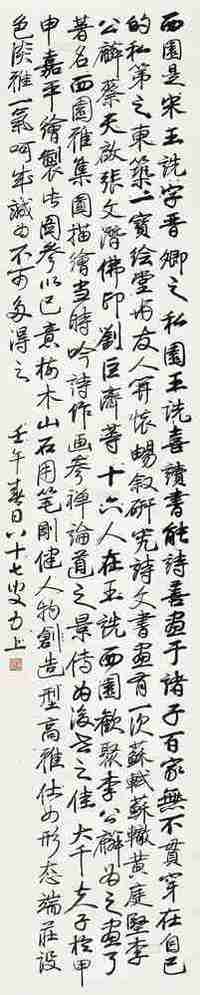 西園是宋王詵字晉卿之私園王詵喜讀書能詩善畫于諸子百家無不貫穿在自己
的私第之東築一寶绘堂为友人开怀暢叙研究詩文書画有一次蘇軾蘇轍黄庭堅李
公麟蔡天啟張文潛佛印劉巨濟等十六人在王詵西園歡聚李公麟为之画了
著名西園雅集圖描繪當時吟詩作画参禅論道之景傳为後世之佳大千夫子於甲
申嘉平繪製此圖参以己意樹木山石用笔剛健人物創造型高雅仕女形态端莊設
色淡雅一氣呵成誠为不可多得之
壬午春日八十七叟力上